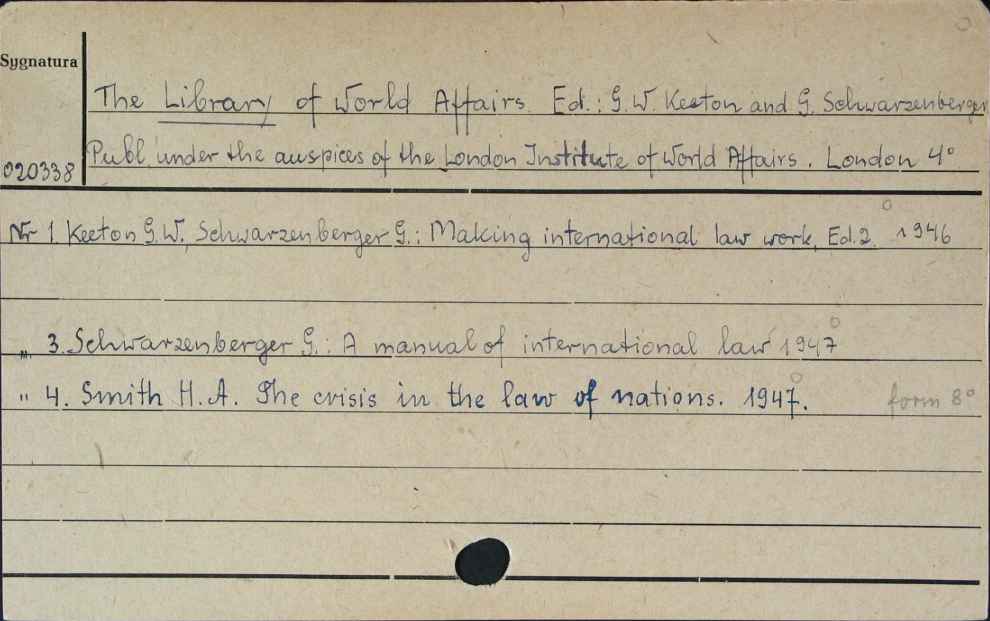 Sygnatura
The Library of World Affairs. Ed.: G.W. Keeton and G. Schwarzenberger
Publ under the auspices of the London Institute of World Affairs. London 4°
020338
Nr 1. Keeton G.W., Schwarzenberger G.: Making international law work, Ed.2. 1946
3. Schwarzenberger G.: A manual of international law 1947
" 4. Smith H.A. The crisis in the law of nations. 1947. form 8°